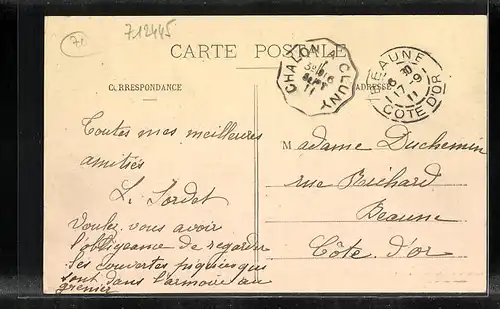 712445
70
CARTE POSTALE
CORRESPONDANCE
ADRESSE
CHALON A CLUNY
11
BEAUNE
17-9
11
COTE D'OR
Toutes mes meilleures
amitiés
L. Sordet
Voulez-vous avoir
l'obligeance de regarder
les couvertes piquées qui
sont dans l'armoire au
grenier
M adame Duchemin
rue Richard
Beaune
Côte d'or